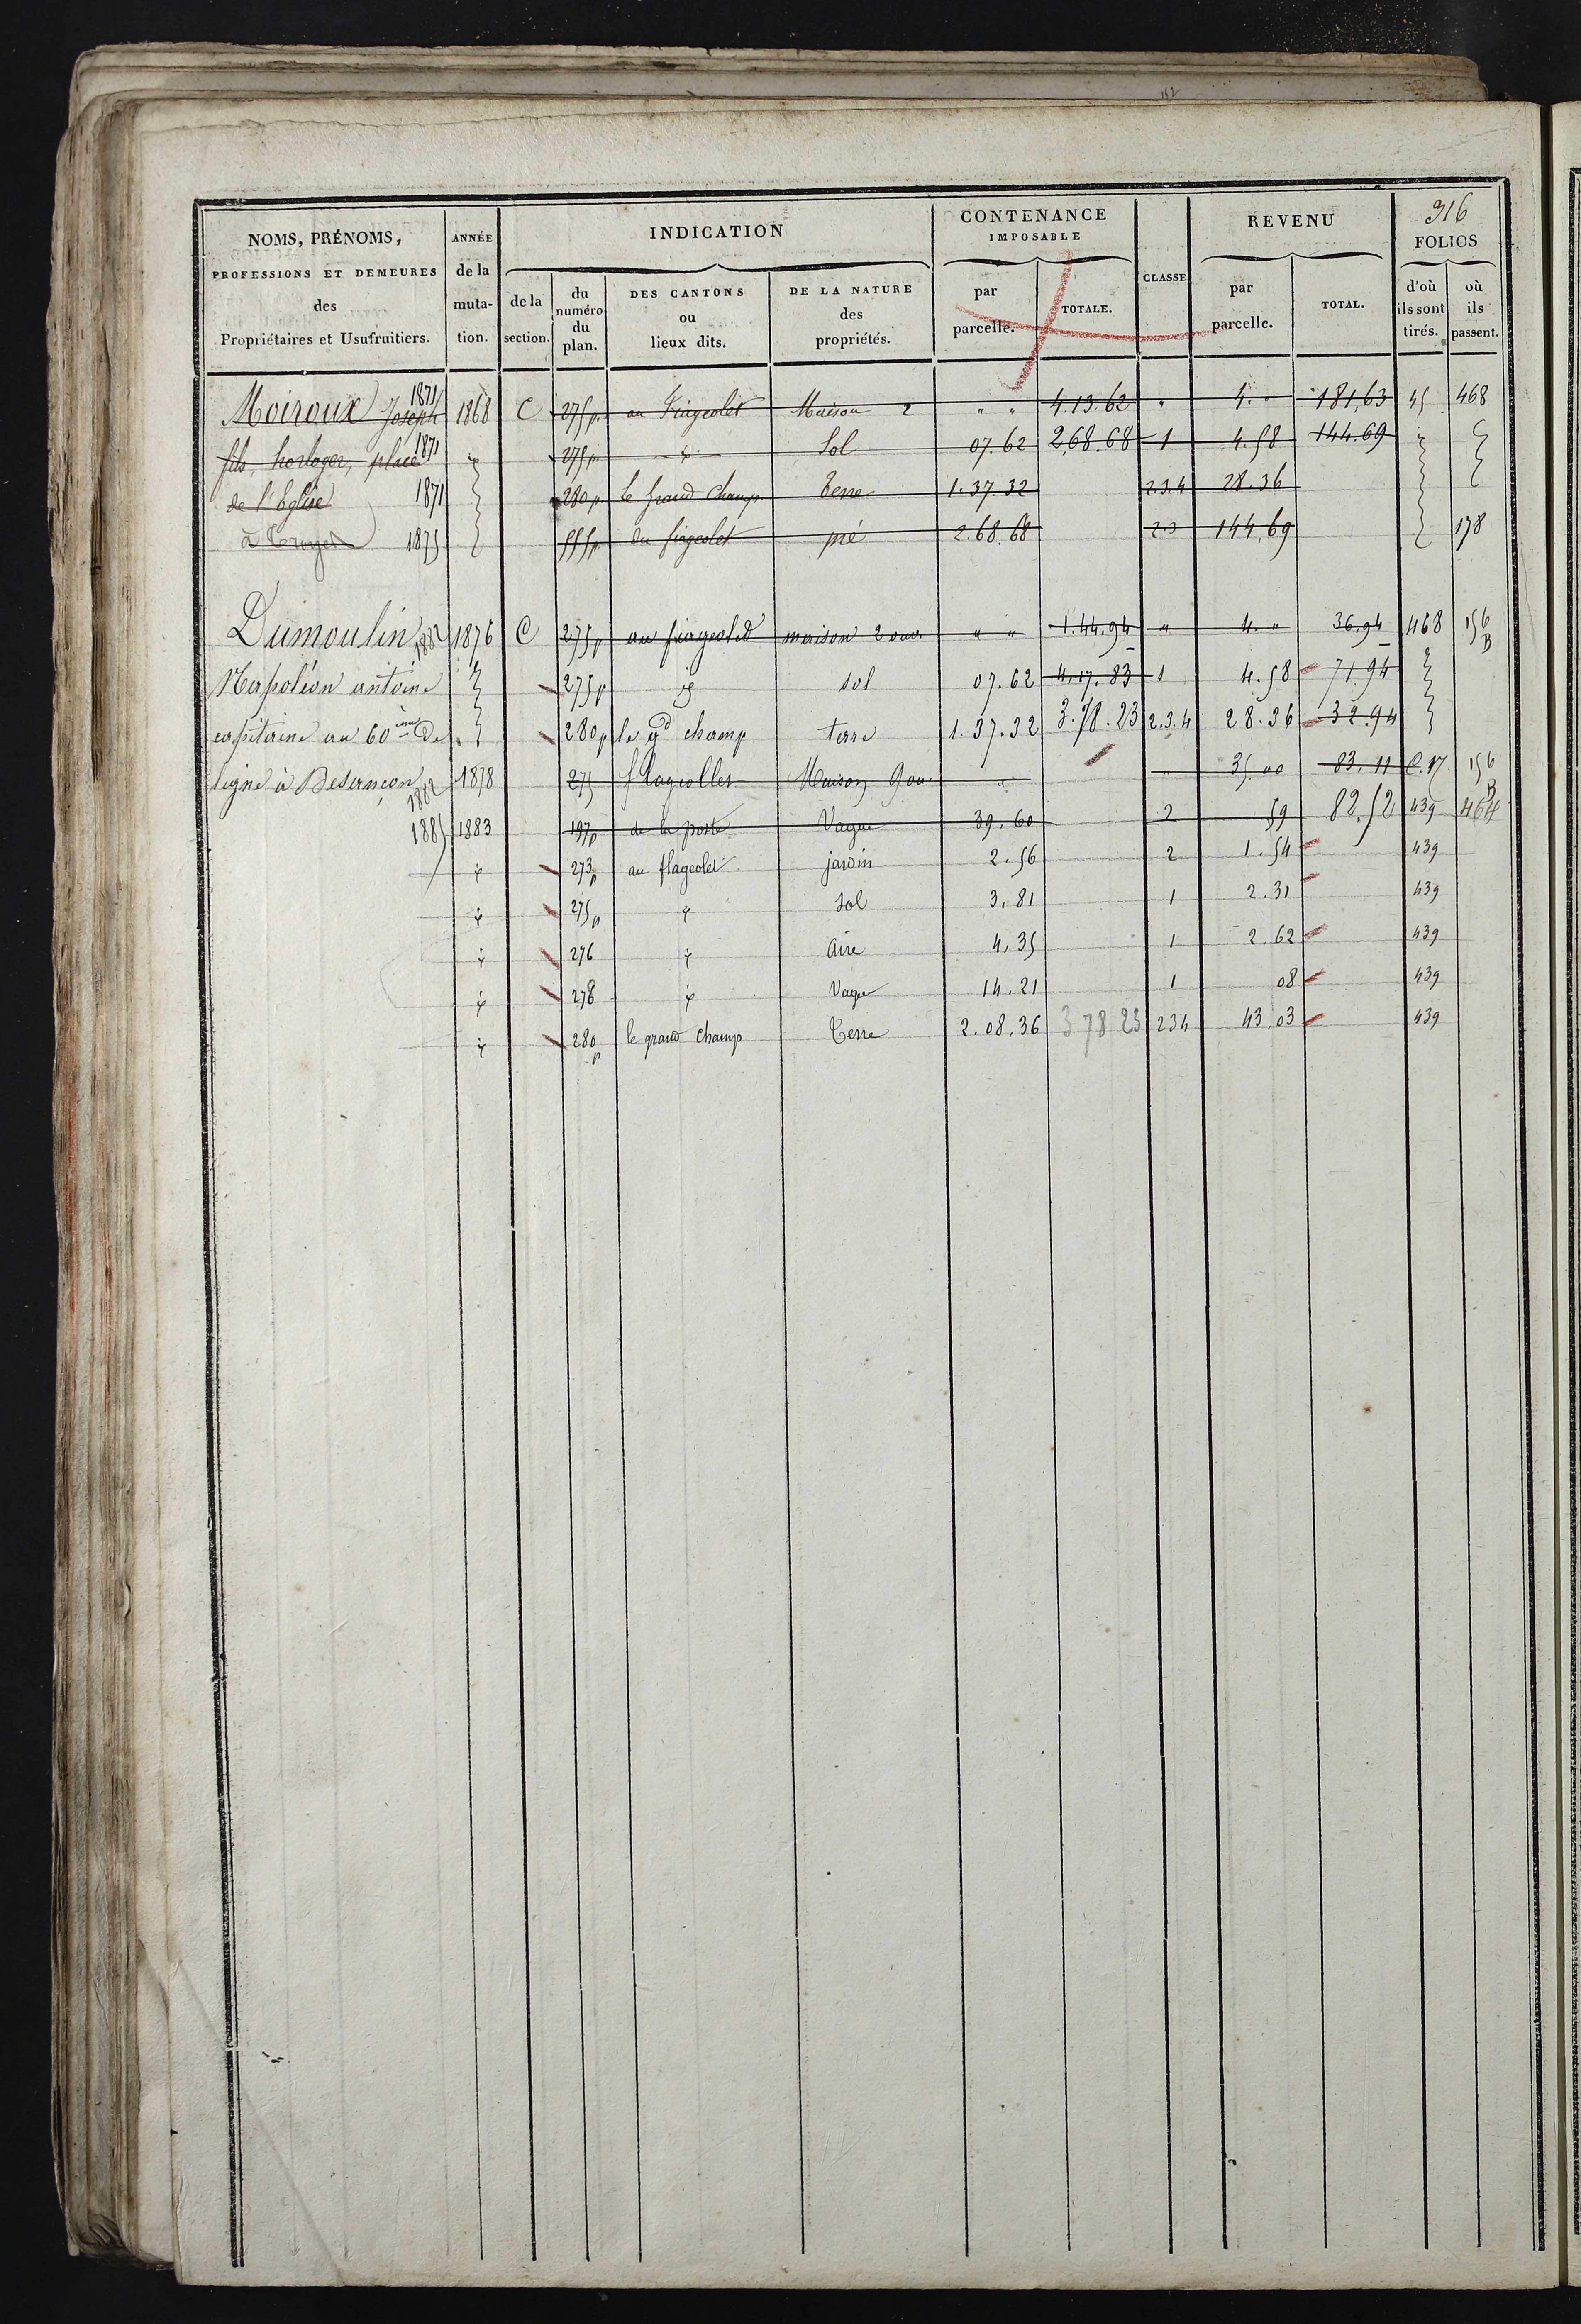 152
316
NOMS, PRÉNOMS,
PROFESSIONS ET DEMEURES
des
Propriétaires et Usufruitiers.
ANNÉE
de la
muta-
tion.
INDICATION
de la
section.
du
numéro
du
plan.
DES CANTONS
ou
lieux dits.
DE LA NATURE
des
propriétés.
CONTENANCE
IMPOSABLE
par
parcelle.
TOTALE.
CLASSE
REVENU
par
parcelle.
TOTAL.
FOLIOS
d'où
ils sont
tirés.
où
ils
passent.
Moiroux Joseph 1871 1868 C 275p au Fiageolet Maison 2 " " 4.13.62 " 4. " 181,63 45 468
fils, horloger, place 1871 id 275p id Sol 07.62 2,68.68 1 4.58 144.69
de l'Eglise 1871 280p le grand champ Terre 1.37.32 2.3.4 28.36
à Troyes 1875 555p du fiageolet pré 2.68.68 2.3 144,69 178
Dumoulin 1882 1876 C 275p au fiageolet maison 2 ouv. " " 1.44.94 " 4. " 36,94 468 156 B
Napoléon antoine 275p id sol 07.62 4,17.83 1 4.58 71.94
capitaine au 60ème de 280p le gd champ terre 1.37.32 3.78.23 2.3.4 28.36 32.94
ligne à Besançon 1882 1878 275 flageollet Maison 9 ou. " " 35.00 83,11 C.N 156 B
1885 1883 197p de la poste Vague 39.60 2 59 82.52 439 464
id 273p au flageolet jardin 2.56 2 1.54 439
id 275p id sol 3.81 1 2.31 439
id 276 id Aire 4.35 1 2.62 439
id 278 id Vague 14.21 1 08 439
id 280p le grand champ Terre 2.08.36 3 78 23 234 43.03 439